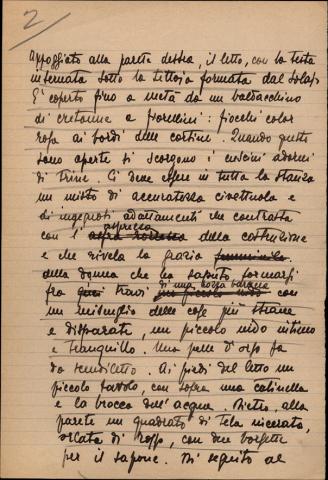 2
Appoggiato alla parete destra, il letto, con la testa
infernata sotto la tettoia formata dal solaio
È coperto fino a metà da un baldacchino
di cretonne a fiorellini: fiocchi color
rosa ai bordi delle cortine. Quando queste
sono aperte si scorgono i cuscini adorni
di trine. Ci deve essere in tutta la stanza
un misto di accuratezza civettuola e
di ingegnosi adattamenti che contrasta
asprezza
con l' aspra rozzezza della costruzione
e che rivela la grazia femminile
della donna che ha saputo formarsi
di una rozza baracca
fra quei travi piccolo nido con
un miscuglio delle cose più strane
e disparate, un piccolo nido intimo
e tranquillo. Una pelle d'orso fa
da scendiletto. Ai piedi del letto un
piccolo tavolo, con sopra una catinella
e la brocca dell'acqua. Dietro, alla
parete un quadrato di tela incerata,
orlata di rosso, con due borsette
per il sapone. Di seguito al